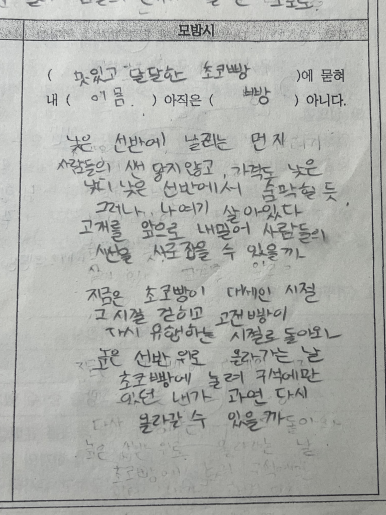 모방시
( 맛있고 달달한 초코빵 )에 묻혀
내 ( 이름 ) 아직은 ( 빵 ) 아니다.
낮은 선반에 날리는 먼지
사람들의 손 닿지않고, 가격도 낮은
낮디 낮은 선반에서 숨막힐 듯,
그러나, 나여기 살아있다
고개를 앞으로 내밀어 사람들의
시선을 사로잡을 수 있을까
지금은 초코빵이 대세인 시절
그 시절 걷히고 고전빵이
다시 유행하는 시절로 돌아와
높은 선반 위로 올라가는 날
초코빵에 눌려 구석에만
있던 내가 과연 다시
올라갈 수 있을까